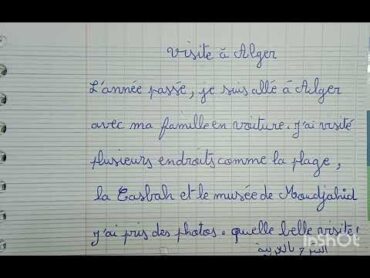 visite à Alger
L'année passé, je suis allé à Alger
avec ma famille en voiture. J'ai visité
plusieurs endroits comme la plage,
la Casbah et le musée de Moudjahid
J'ai pris des photos. quelle belle visite!
InShOt
الشرح بالعربية